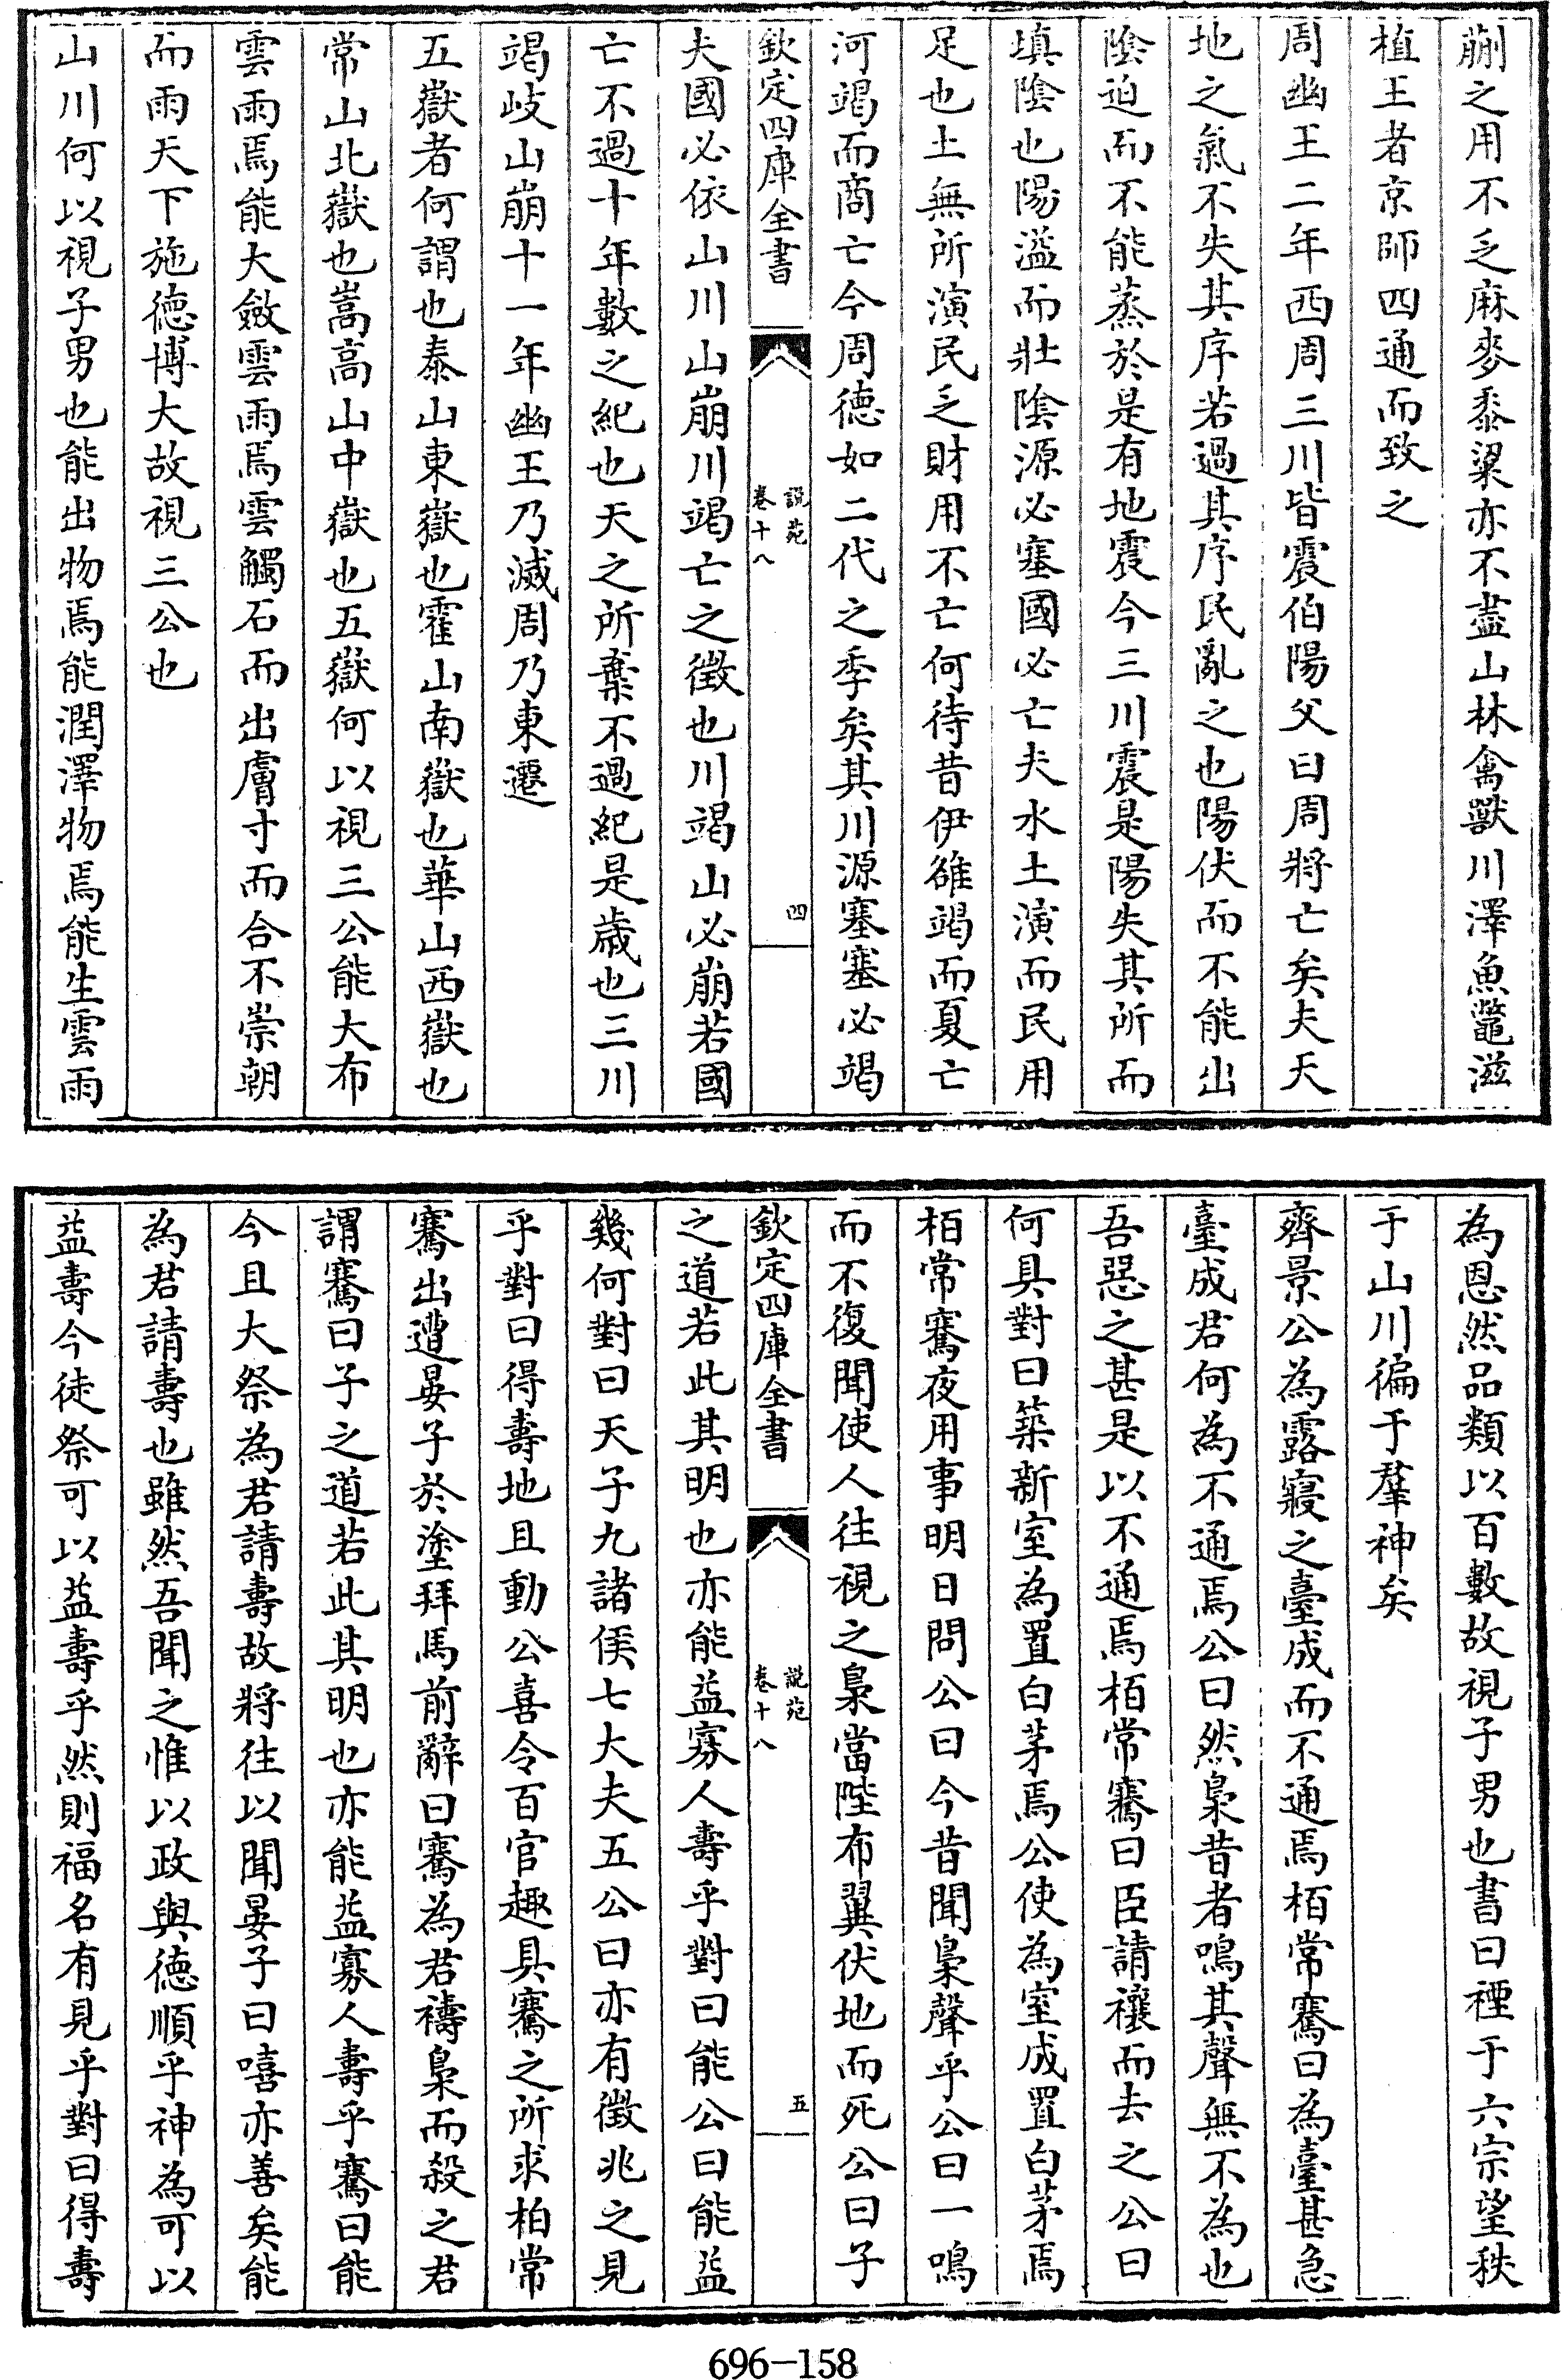 蒯之用不乏麻麥黍粱亦不盡山林禽獸川澤魚鼈滋
植王者京師四通而致之
周幽王二年西周三川皆震伯陽父曰周將亡矣夫天
地之氣不失其序若過其序民亂之也陽伏而不能出
陰迫而不能蒸於是有地震今三川震是陽失其所而
填陰也陽溢而壯陰源必塞國必亡夫水土演而民用
足也土無所演民乏財用不亡何待昔伊雒竭而夏亡
河竭而商亡今周德如二代之季矣其川源塞塞必竭
欽定四庫全書
說苑
卷十八
四
夫國必依山川山崩川竭亡之徵也川竭山必崩若國
亡不過十年數之紀也天之所棄不過紀是歲也三川
竭岐山崩十一年幽王乃滅周乃東遷
五嶽者何謂也泰山東嶽也霍山南嶽也華山西嶽也
常山北嶽也嵩高山中嶽也五嶽何以視三公能大布
雲雨焉能大斂雲雨焉雲觸石而出膚寸而合不崇朝
而雨天下施德博大故視三公也
山川何以視子男也能出物焉能潤澤物焉能生雲雨
為恩然品類以百數故視子男也書曰禋于六宗望秩
于山川徧于羣神矣
齊景公為露寢之臺成而不通焉栢常騫曰為臺甚急
臺成君何為不通焉公曰然梟昔者鳴其聲無不為也
吾惡之甚是以不通焉栢常騫曰臣請禳而去之公曰
何具對曰築新室為置白茅焉公使為室成置白茅焉
栢常騫夜用事明日問公曰今昔聞梟聲乎公曰一鳴
而不復聞使人往視之梟當陛布翼伏地而死公曰子
欽定四庫全書
說苑
卷十八
五
之道若此其明也亦能益寡人壽乎對曰能公曰能益
幾何對曰天子九諸侯七大夫五公曰亦有徵兆之見
乎對曰得壽地且動公喜令百官趣具騫之所求柏常
騫出遭晏子於塗拜馬前辭曰騫為君禱梟而殺之君
謂騫曰子之道若此其明也亦能益寡人壽乎騫曰能
今且大祭為君請壽故將往以聞晏子曰嘻亦善矣能
為君請壽也雖然吾聞之惟以政與德順乎神為可以
益壽今徒祭可以益壽乎然則福名有見乎對曰得壽
696-158